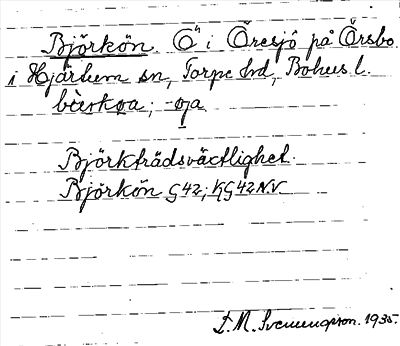 Björkön. Ö i Öresjö på Örsbo
i Hjärtum sn, Torpe hd, Bohusl.
Björkträdsväxtlighet.
Björkön G42; KG42NV
S. M. Svenungsson. 1935.